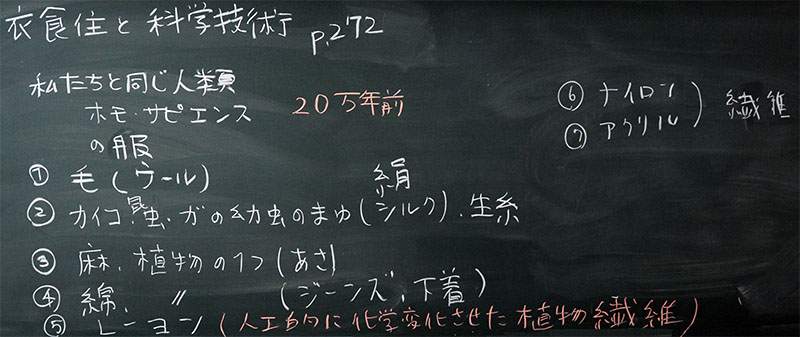 衣食住と科学技術 p.272
私たちと同じ人類
ホモ・サピエンス 20万年前
の服
① 毛(ウール)
絹
② カイコ、昆虫、ガの幼虫のまゆ(シルク)、生糸
③ 麻、植物の1つ(あさ)
④ 綿、〃 (ジーンズ、下着)
⑤ レーヨン(人工的に化学変化させた植物繊維)
⑥ ナイロン
⑦ アクリル
繊維